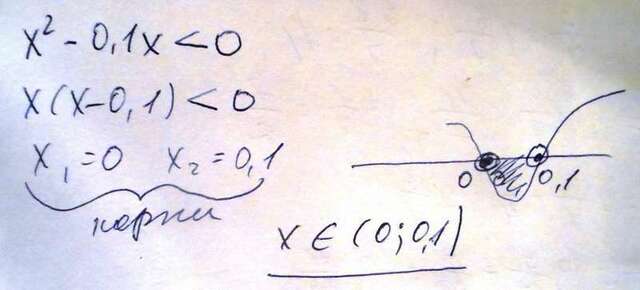 x² - 0,1x < 0
x(x-0,1) < 0
x₁ = 0 x₂ = 0,1
корни
0 0,1
x ∈ (0; 0,1)